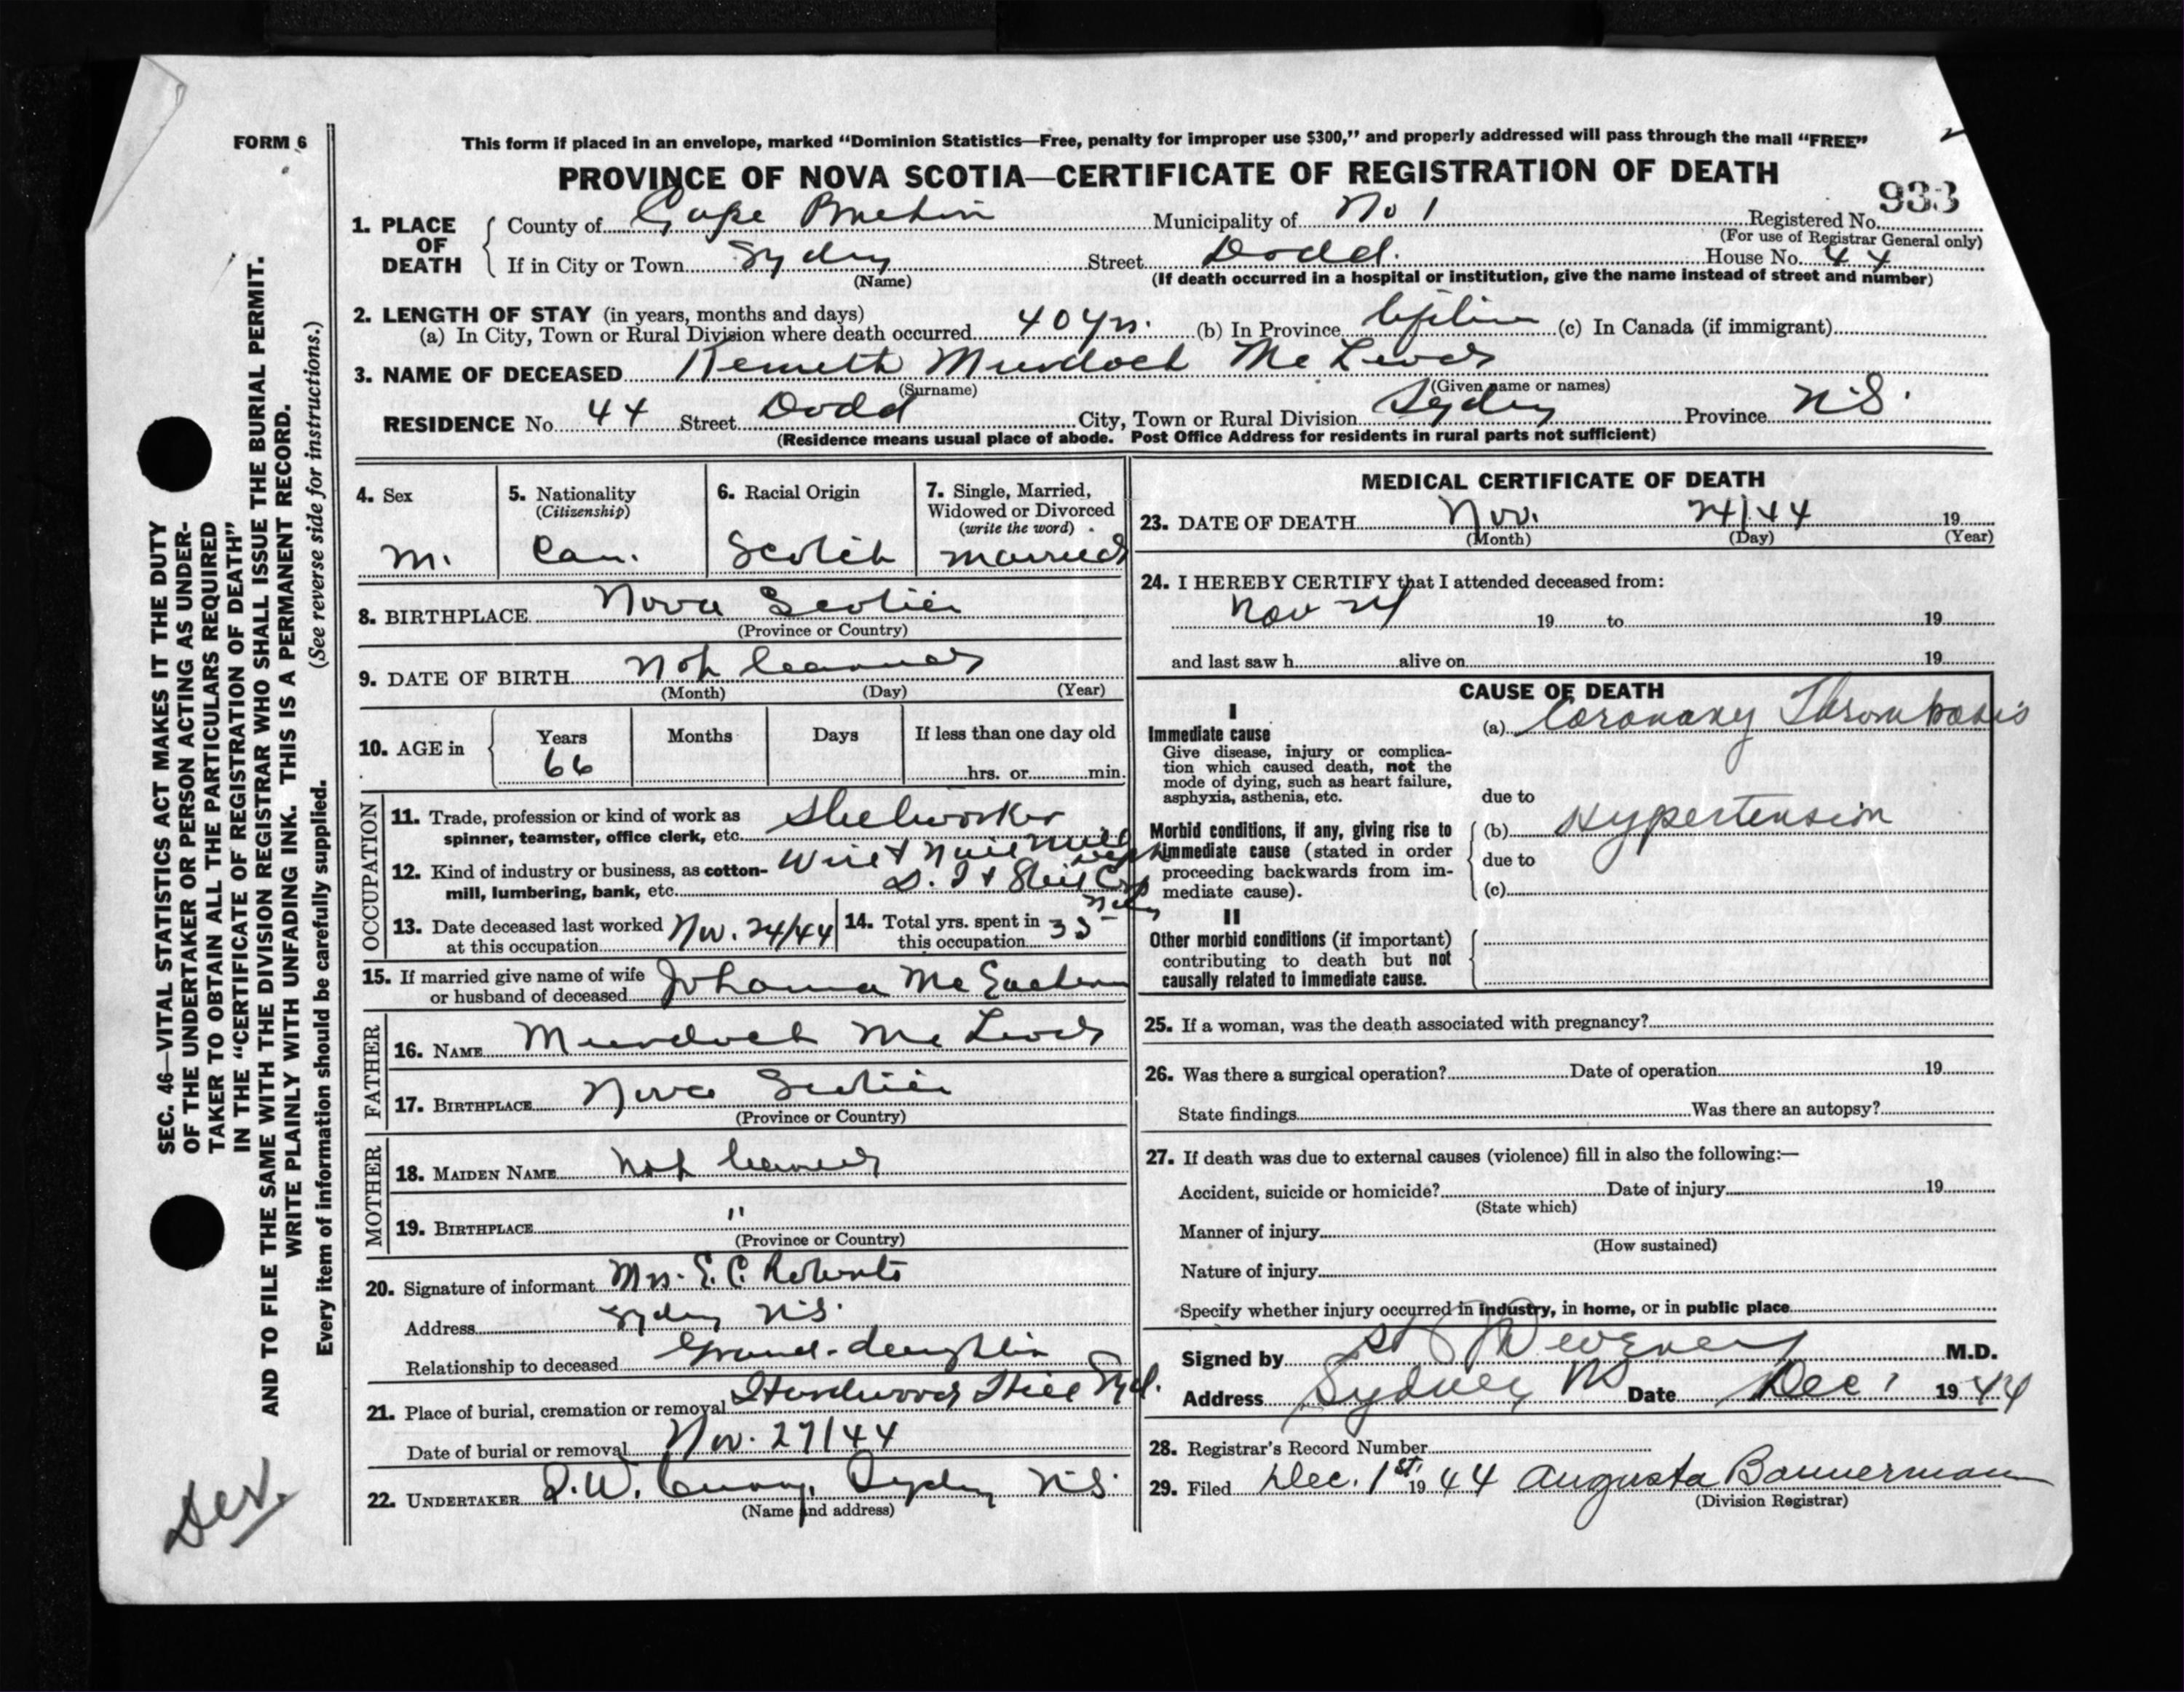 FORM 6
This form if placed in an envelope, marked “Dominion Statistics—Free, penalty for improper use $300,” and properly addressed will pass through the mail “FREE”
PROVINCE OF NOVA SCOTIA—CERTIFICATE OF REGISTRATION OF DEATH
933
1. PLACE OF DEATH { County of Cape Breton Municipality of No 1 Registered No.
(For use of Registrar General only)
If in City or Town Sydney Street Dodd. House No. 44
(Name) (If death occurred in a hospital or institution, give the name instead of street and number)
2. LENGTH OF STAY (in years, months and days)
(a) In City, Town or Rural Division where death occurred 40 yrs. (b) In Province lifetime (c) In Canada (if immigrant)
3. NAME OF DECEASED Kenneth Murdoch McLeod
(Surname) (Given name or names)
RESIDENCE No. 44 Street Dodd City, Town or Rural Division Sydney Province N.S.
(Residence means usual place of abode. Post Office Address for residents in rural parts not sufficient)
4. Sex
M.
5. Nationality
(Citizenship)
Can.
6. Racial Origin
Scotch
7. Single, Married,
Widowed or Divorced
(write the word)
married
8. BIRTHPLACE Nova Scotia
(Province or Country)
9. DATE OF BIRTH Not learned
(Month) (Day) (Year)
10. AGE in { Years Months Days If less than one day old
66 hrs. or min.
OCCUPATION
11. Trade, profession or kind of work as
spinner, teamster, office clerk, etc. Steelworker
12. Kind of industry or business, as cotton-
mill, lumbering, bank, etc. Wire & Nail Mill
D. I & Steel Corp
Sydney
13. Date deceased last worked
at this occupation Nov. 24/44
14. Total yrs. spent in
this occupation 35
15. If married give name of wife
or husband of deceased Johanna McEachern
FATHER
16. NAME Murdoch McLeod
17. BIRTHPLACE Nova Scotia
(Province or Country)
MOTHER
18. MAIDEN NAME not learned
19. BIRTHPLACE "
(Province or Country)
20. Signature of informant Mrs. E. C. Roberts
Address Sydney N.S.
Relationship to deceased Grand-daughter
21. Place of burial, cremation or removal Hardwood Hill Syd.
Date of burial or removal Nov. 27/44
22. UNDERTAKER Sydney N.S.
(Name and address)
MEDICAL CERTIFICATE OF DEATH
23. DATE OF DEATH Nov. 24/44 19
(Month) (Day) (Year)
24. I HEREBY CERTIFY that I attended deceased from:
Nov 24 19 to 19
and last saw h alive on 19
CAUSE OF DEATH
I
Immediate cause
Give disease, injury or complica-
tion which caused death, not the
mode of dying, such as heart failure,
asphyxia, asthenia, etc.
(a) Coronary Thrombosis
due to
Morbid conditions, if any, giving rise to
immediate cause (stated in order
proceeding backwards from im-
mediate cause).
(b) Hypertension
due to
(c)
II
Other morbid conditions (if important)
contributing to death but not
causally related to immediate cause.
25. If a woman, was the death associated with pregnancy?
26. Was there a surgical operation? Date of operation 19
State findings Was there an autopsy?
27. If death was due to external causes (violence) fill in also the following:—
Accident, suicide or homicide? Date of injury 19
(State which)
Manner of injury
(How sustained)
Nature of injury
Specify whether injury occurred in industry, in home, or in public place
Signed by M.D.
Address Sydney NS Date Dec 1 1944
28. Registrar's Record Number
29. Filed Dec. 1st. 1944 Augusta Bannerman
(Division Registrar)
SEC. 46—VITAL STATISTICS ACT MAKES IT THE DUTY
OF THE UNDERTAKER OR PERSON ACTING AS UNDER-
TAKER TO OBTAIN ALL THE PARTICULARS REQUIRED
IN THE “CERTIFICATE OF REGISTRATION OF DEATH”
AND TO FILE THE SAME WITH THE DIVISION REGISTRAR WHO SHALL ISSUE THE BURIAL PERMIT.
WRITE PLAINLY WITH UNFADING INK. THIS IS A PERMANENT RECORD.
Every item of information should be carefully supplied. (See reverse side for instructions.)